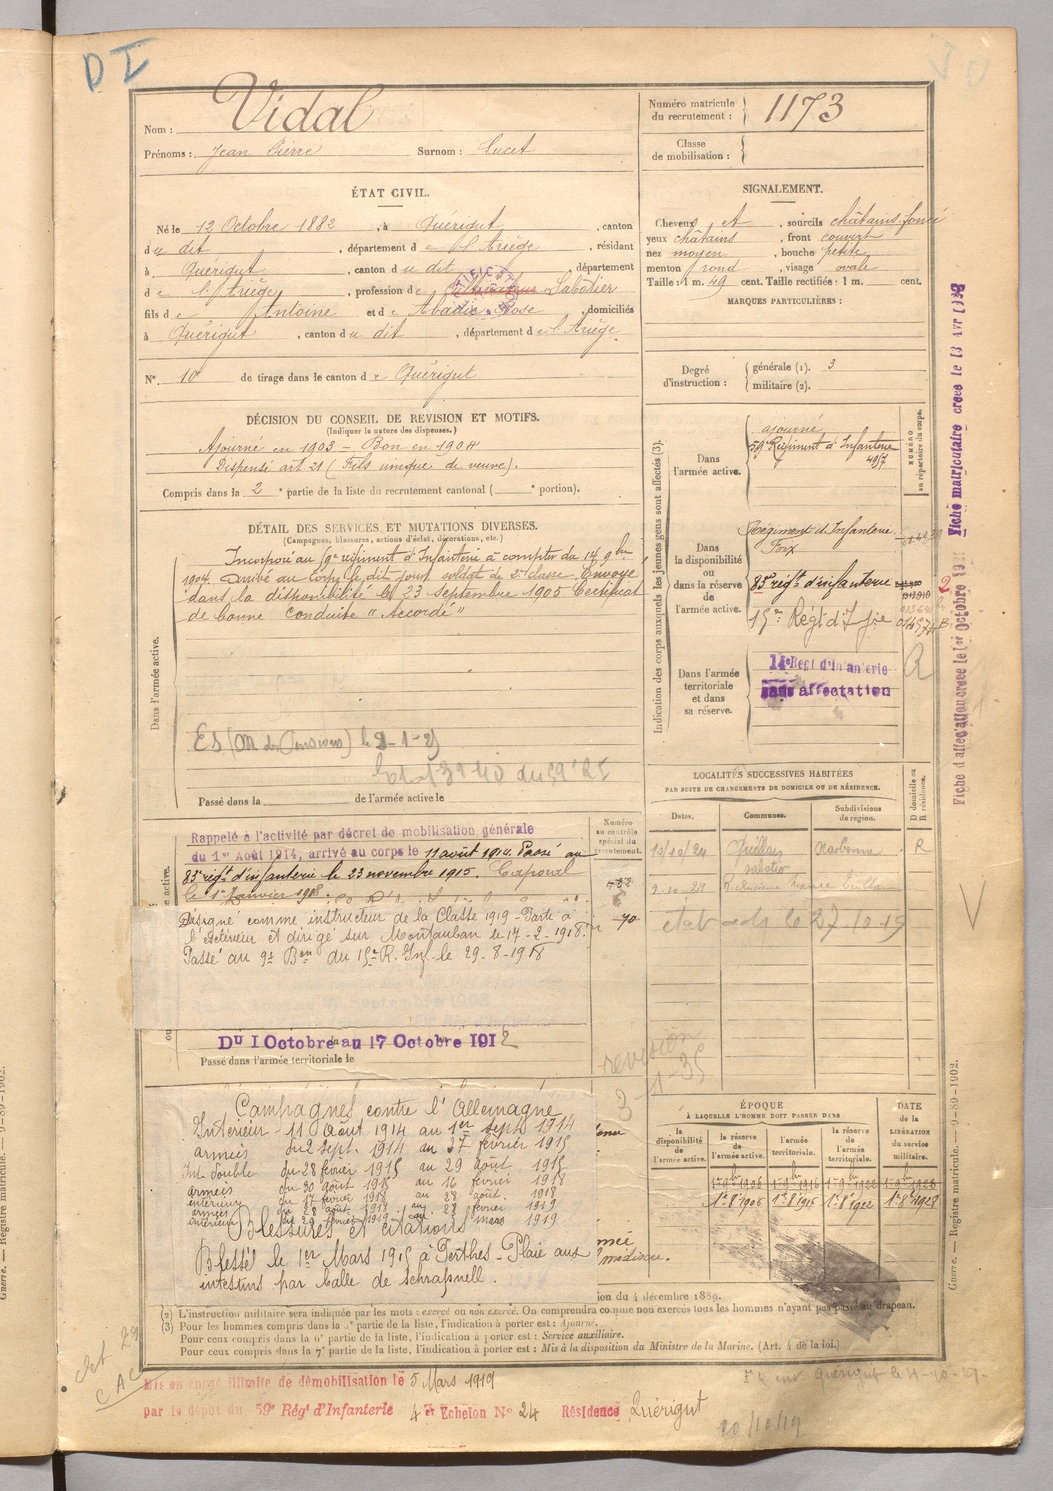 D I
Vidal
Nom :
Prénoms : Jean Pierre Surnom : Lucet
Numéro matricule du recrutement : 1173
Classe de mobilisation :
ÉTAT CIVIL.
Né le 12 Octobre 1882, à Quérigut, canton
du dit, département de l'Ariège, résidant
à Quérigut, canton du dit, département
de l'Ariège, profession de Cultivateur Sabotier
fils de Antoine et de Abadie Rose, domiciliés
à Quérigut, canton du dit, département de l'Ariège.
N° 10 de tirage dans le canton de Quérigut
SIGNALEMENT.
Cheveux et, sourcils châtains-foncé
yeux châtains, front couvert
nez moyen, bouche petite
menton rond, visage ovale
Taille : 1 m. 49 cent. Taille rectifiée : 1 m. cent.
MARQUES PARTICULIÈRES :
Degré d'instruction : générale (1). 3
militaire (2).
DÉCISION DU CONSEIL DE REVISION ET MOTIFS.
(Indiquer la nature des dispenses.)
Ajourné en 1903 – Bon en 1904
Dispensé art. 21 (Fils unique de veuve).
Compris dans la 2e partie de la liste du recrutement cantonal ( e portion).
DÉTAIL DES SERVICES ET MUTATIONS DIVERSES.
(Campagnes, blessures, actions d'éclat, décorations, etc.)
Incorporé au 59e régiment d'Infanterie à compter du 14 9bre
1904. Arrivé au corps le dit jour soldat de 2e classe. Envoyé
dans la disponibilité le 23 septembre 1905 Certificat
de bonne conduite "Accordé"
Dans l'armée active.
ES (M. des Pensions) le
Passé dans la de l'armée active le
Indication des corps auxquels les jeunes gens sont affectés (3).
NUMÉRO au répertoire du corps.
Dans l'armée active.
ajourné
59e Régiment d'Infanterie
Dans la disponibilité ou dans la réserve de l'armée active.
Régiment d'Infanterie
Foix
83e régt d'infanterie
15e Régt d'Infie
Dans l'armée territoriale et dans sa réserve.
14e Régt d'Infanterie
sans affectation
R
Fiche d'affectation créée le 1er Octobre
Fiche matriculaire créée le
LOCALITÉS SUCCESSIVES HABITÉES
PAR SUITE DE CHANGEMENTS DE DOMICILE OU DE RÉSIDENCE.
Dates. Communes. Subdivisions de région. D domicile ou R résidence.
10/10/24 Quillan Narbonne R
sabotier
Numéro au contrôle spécial du recrutement.
Rappelé à l'activité par décret de mobilisation générale
du 1er Août 1914, arrivé au corps le 11 août 1914. Passé au
83e régt d'infanterie le 23 novembre 1915. Caporal
le 1er Janvier 1918
Désigné comme instructeur de la Classe 1919 – Parti à
l'Intérieur et dirigé sur Montauban le 17-2-1918.
Passé au 9e Bon du 15e R. Inf. le 29-8-1918
Du 1 Octobre au 17 Octobre 1912
Passé dans l'armée territoriale le
revision
Campagnes contre l'Allemagne
Intérieur 11 Août 1914 au 1er sept 1914
armées du 2 sept. 1914 au 27 février 1915
Int. double du 28 février 1915 au 29 août 1915
armées du 30 août 1915 au 16 février 1918
intérieur du 17 février 1918 au 28 août 1918
armées du 28 août 1918 au 28 février 1919
intérieur
Blessures et citations
Blessé le 1er Mars 1915 à Perthes – Plaie aux
intestins par balle de schrapnell.
ÉPOQUE
À LAQUELLE L'HOMME DOIT PASSER DANS
la disponibilité de l'armée active. la réserve de l'armée active. l'armée territoriale. la réserve de l'armée territoriale.
DATE de la LIBÉRATION du service militaire.
ion du 4 décembre 1889.
(2) L'instruction militaire sera indiquée par les mots : exercé ou non exercé. On comprendra comme non exercés tous les hommes n'ayant pas passé au drapeau.
(3) Pour les hommes compris dans la 5e partie de la liste, l'indication à porter est : Ajourné.
Pour ceux compris dans la 6e partie de la liste, l'indication à porter est : Service auxiliaire.
Pour ceux compris dans la 7e partie de la liste, l'indication à porter est : Mis à la disposition du Ministre de la Marine. (Art. 4 de la loi.)
Mis en congé illimité de démobilisation le 5 Mars 1919
par le dépôt du 59e Régt d'Infanterie 4e Echelon N° 24 Résidence Quérigut
Guerre. — Registre matricule. — 9-89-1902.